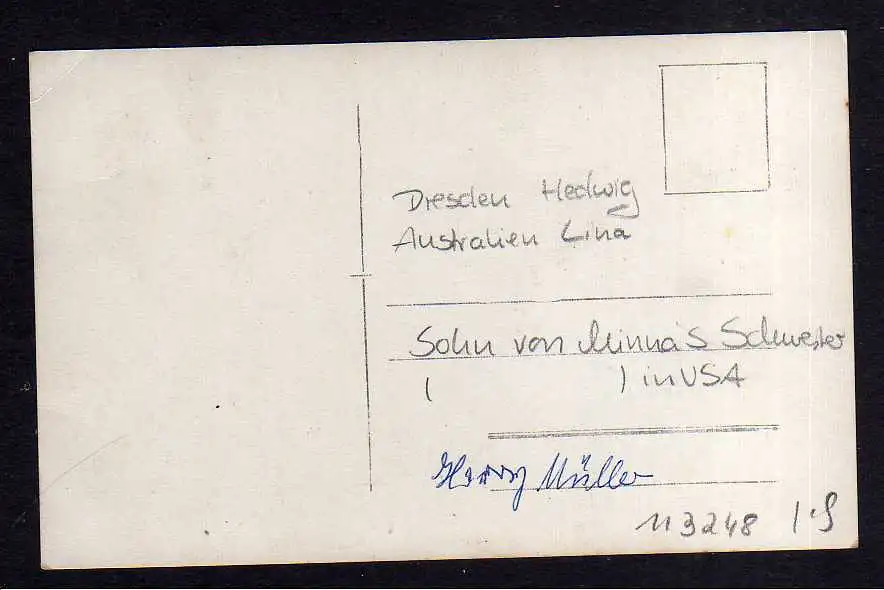 Dresden Hedwig
Australien Lina
Sohn von Minna's Schwester
( ) in USA
Harry Müller
113248